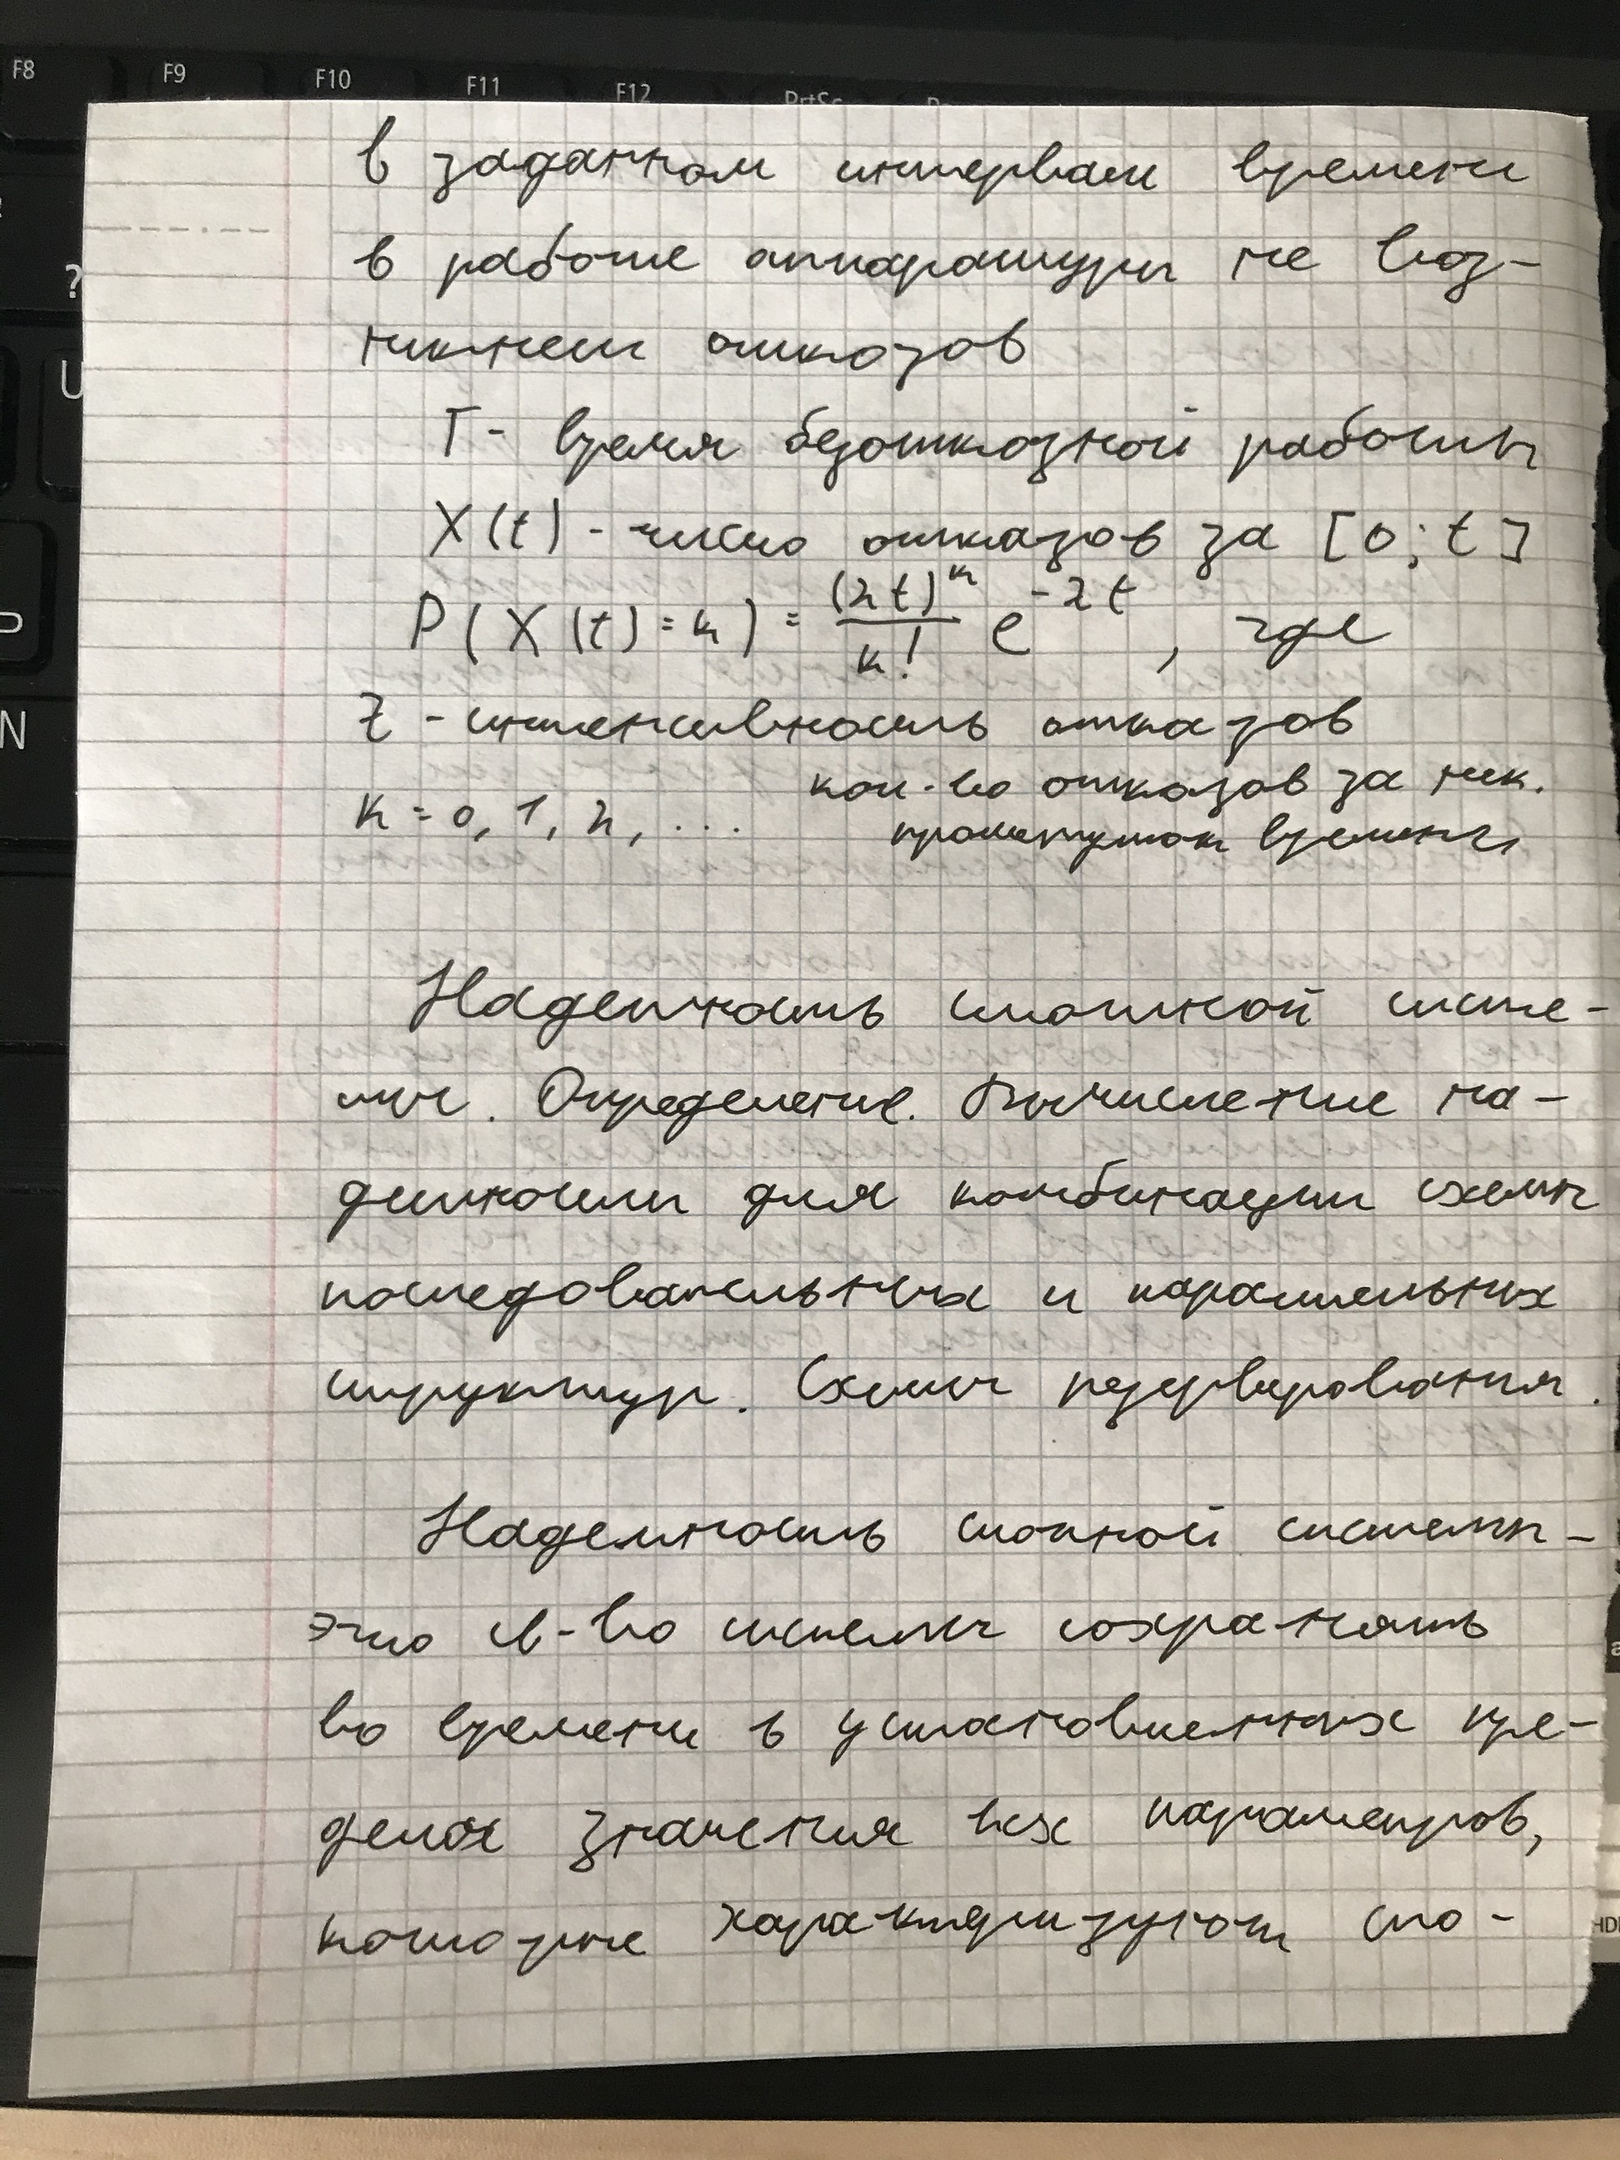 F8 F9 F10 F11 F12 PrtSc
?
U
P
N
в заданном интервале времени
в работе аппаратуры не воз-
никнет отказов
T - время безотказной работы
X(t) - число отказов за [0; t]
P(X(t)=k) = (λt)^k / k! e^-λt, где
λ - интенсивность отказов
k = 0, 1, 2, ... кол-во отказов за нек.
промежуток времени
Надежность сложной систе-
мы. Определение. Вычисление на-
дежности для комбинации схемы
последовательных и параллельных
структур. Схемы резервирования.
Надежность сложной системы -
это св-во системы сохранять
во времени в установленных пре-
делах значения всех параметров,
которые характеризуют спо-